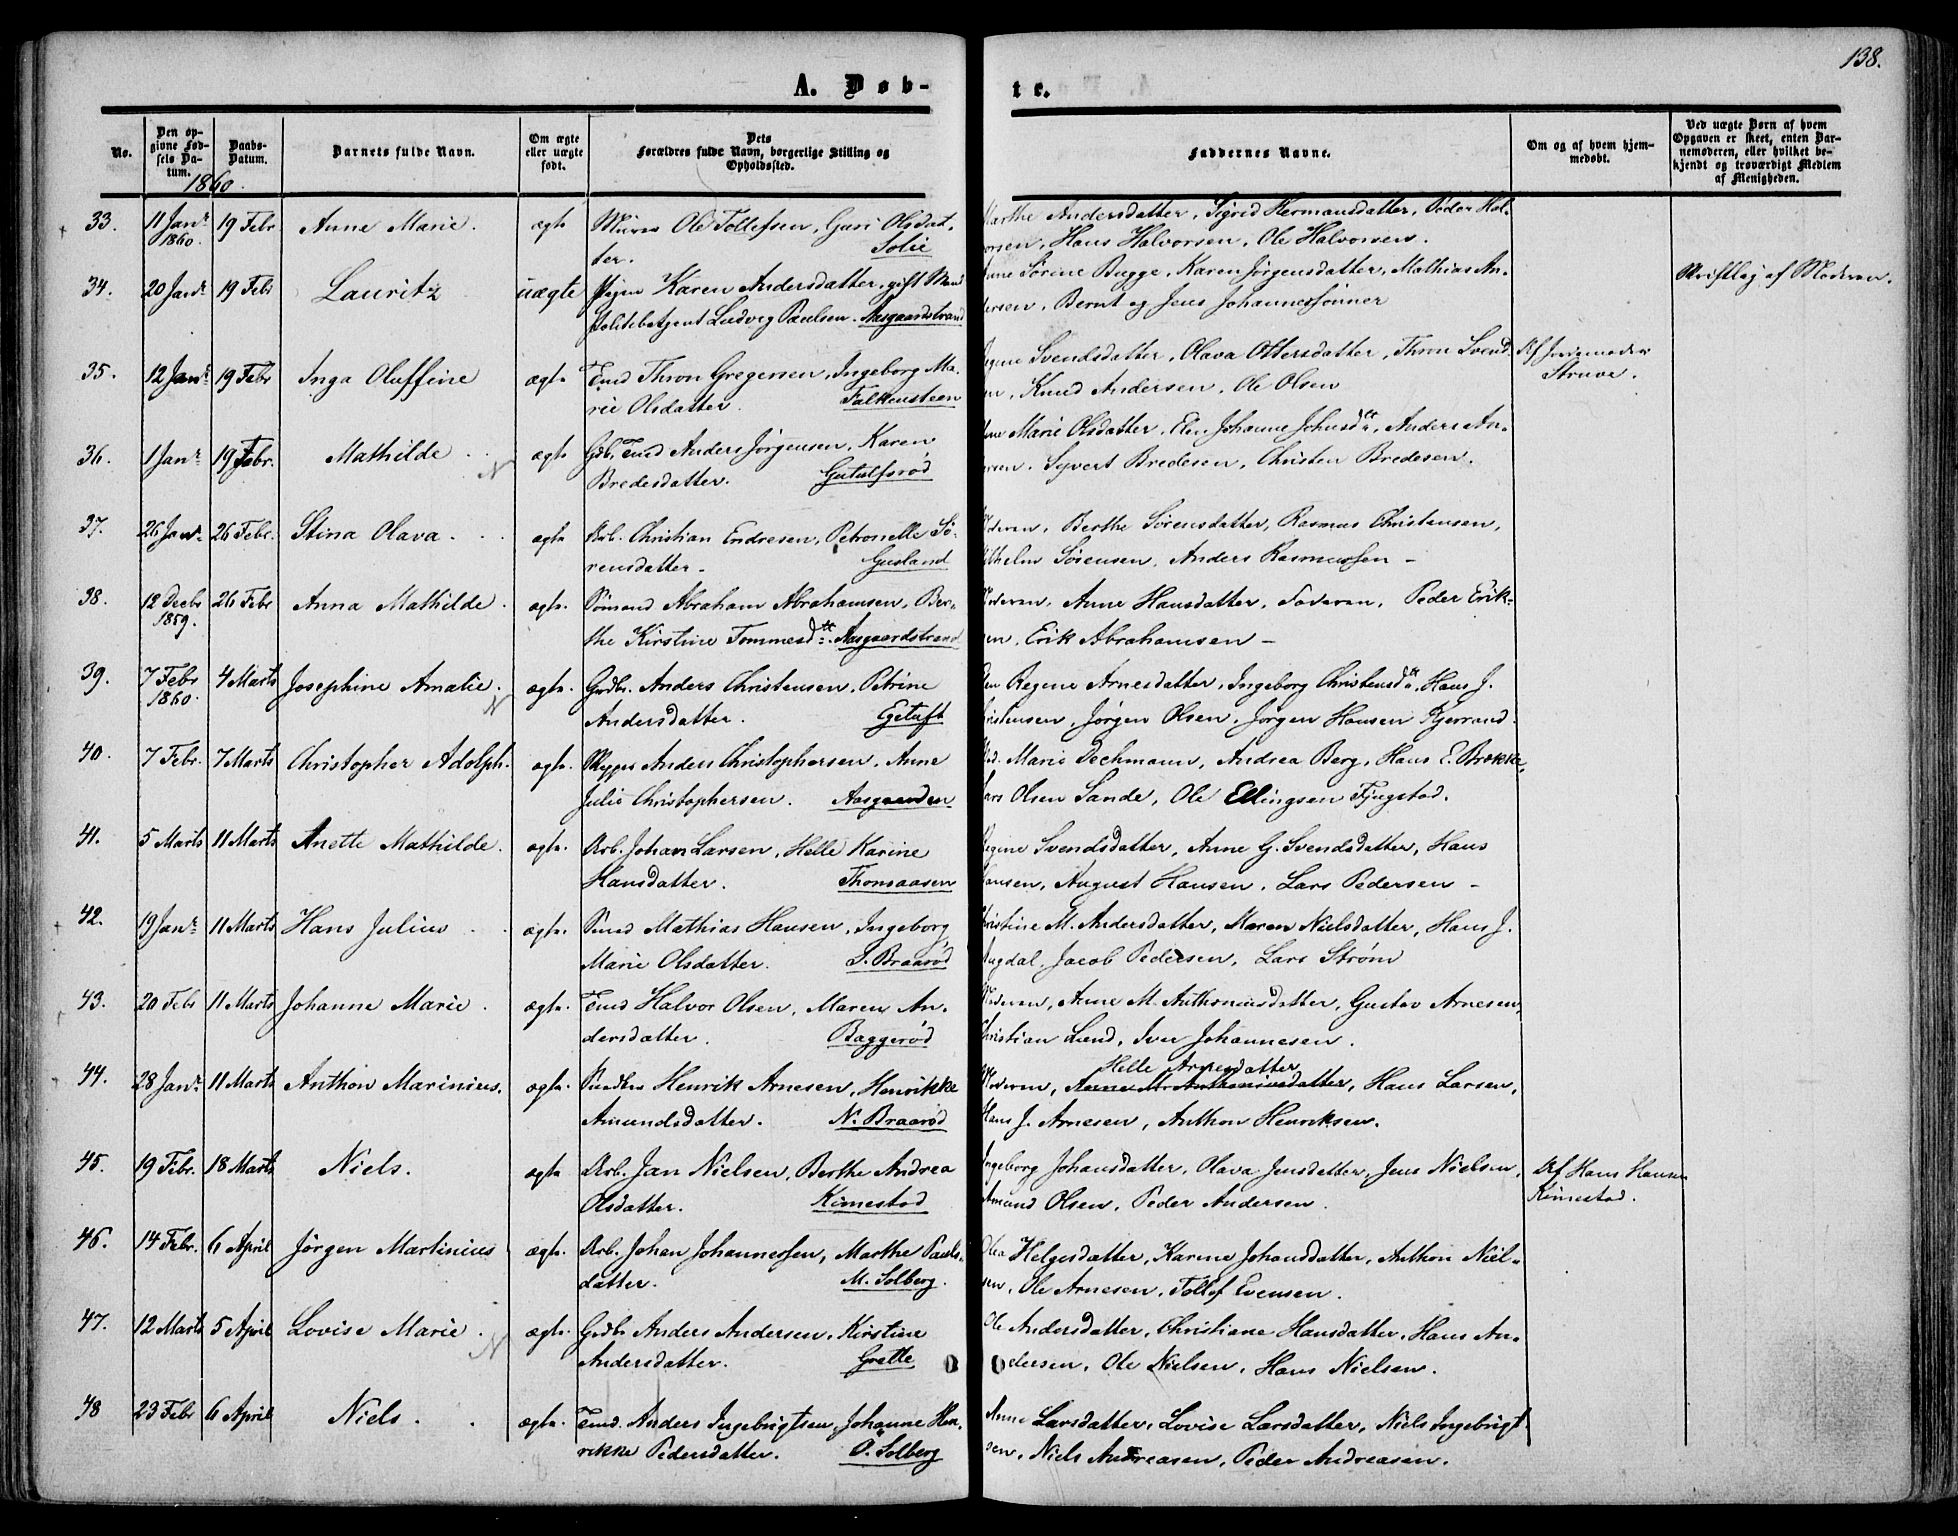 138.
A. Døb-
te.
No.
Den op-
givne Fød-
sels Da-
tum.
Daabs-
Datum.
Barnets fulde Navn.
Om ægte
eller uægte
født.
Dets
Forældres fulde Navn, borgerlige Stilling og
Opholdssted.
Faddernes Navne.
Om og af hvem hjem-
medøbt.
Ved uægte Børn af hvem
Opgaven er skeet, enten Bar-
nemoderen, eller hvilket be-
kjendt og troværdigt Medlem
af Menigheden.
1860.
33. 11 Janr 1860. 19 Febr Anne Marie. ægte Murer Ole Tollefsen, Guri Olsdat-
ter. Solie
Marthe Andersdatter, Sigrid Hermansdatter, Peder Hal-
vorsen, Hans Halvorsen, Ole Halvorsen.
34. 20 Janr 19 Febr Lauritz uægte Pigen Karen Andersdatter, gift Mand
Politibetjent Ludvig Paulsen. Aasgaardstrand
Anne Sørine Bugge, Karen Jørgensdatter, Mathias An-
dersen, Bernt og Jens Johannessønner
Skriftlig af Moderen.
35. 12 Janr 19 Febr Inga Oluffine ægte Tmd Thron Gregersen, Ingeborg Ma-
rie Olsdatter. Falkensteen
Regine Svendsdatter, Olava Ottersdatter, Thron Svend-
sen, Knud Andersen, Ole Olsen
Af Jordemoder
Struve.
36. 1 Janr 19 Febr. Mathilde ægte Gdb. Tmd Anders Jørgensen, Karen
Bredesdatter. Gutulfsrød
Marie Olsdatter, Elen Johanne Johnsdtr, Anders An-
dersen, Syvert Bredesen, Christen Bredesen.
37. 26 Janr 26 Febr. Stina Olava. ægte Arb. Christian Endresen, Petronelle Sø-
rensdatter. Gusland
Moderen, Berthe Sørensdatter, Rasmus Christensen,
Vilhelm Sørensen, Anders Rasmussen -
38. 12 Decbr 1859. 26 Febr Anna Mathilde. ægte. Sømand Abraham Abrahamsen, Ber-
the Kirstine Tommesdtr. Aasgaardstrand
Moderen, Anne Hansdatter, Faderen, Peder Erik-
sen, Erik Abrahamsen -
39. 7 Febr 1860. 4 Marts Josephine Amalie. ægte. Grdbr. Anders Christensen, Petrine
Andersdatter. Egetuft
Regine Arnesdatter, Ingeborg Christensdtr, Hans J.
Christensen, Jørgen Olsen, Jørgen Hansen Kjerrand.
40. 7 Febr. 7 Marts Christopher Adolph. ægte. Skipper Anders Christophersen, Anne
Julie Christophersen. Aasgaarden
Marie Dechmann, Andrea Berg, Hans E. Brekke,
Lars Olsen Sande, Ole Ellingsen Fjugstad.
41. 5 Marts 11 Marts Anette Mathilde. ægte. Arb. Johan Larsen, Helle Karine
Hansdatter. Thomaasen
Regine Svendsdatter, Anne G. Svendsdatter, Hans
Hansen, August Hansen, Lars Pedersen -
42. 19 Janr 11 Marts Hans Julius ægte. Smed Mathias Hansen, Ingeborg
Marie Olsdatter. S. Braarød
Christine M. Andersdatter, Maren Nielsdatter, Hans J.
Augdal, Jacob Pedersen, Lars Strøm
43. 20 Febr 11 Marts Johanne Marie. ægte. Tmd Halvor Olsen, Maren An-
dersdatter. Baggerød
Moderen, Anne M. Anthoniusdatter, Gustav Arnesen,
Christian Lund, Iver Johannesen.
44. 28 Janr 11 Marts Anthon Marinius. ægte. Henrik Arnesen, Henrikke
Amundsdatter. N. Braarød
Helle Arnesdatter
Moderen, Anne M. Anthoniusdatter, Hans Larsen,
Hans J. Arnesen, Anthon Henriksen.
45. 19 Febr. 18 Marts Niels. ægte Arb. Jan Nielsen, Berthe Andrea
Olsdatter. Kimestad
Ingeborg Johansdatter, Olava Jensdatter, Jens Nielsen,
Amund Olsen, Peder Andersen.
Af Hans Hansen
Kimestad.
46. 14 Febr. 6 April Jørgen Martinius ægte. Arb. Johan Johannessen, Marthe Pauls-
datter. M. Solberg.
Olea Helgesdatter, Karine Johansdatter, Anthon Niel-
sen, Ole Arnesen, Tollef Evensen.
47. 12 Marts 5 April Lovise Marie. ægte. Grdbr Anders Andersen, Kirstine
Andersdatter. Grette
Ole Andersdatter, Christiane Hansdatter, Hans An-
dersen, Ole Nielsen, Hans Nielsen.
48 23 Febr 6 April Niels. ægte. Tmd. Anders Ingebrigtsen, Johanne Hen-
rikke Pedersdatter. O. Solberg
Anne Larsdatter, Lovise Larsdatter, Niels Ingebrigt-
sen, Niels Andreasen, Peder Andreasen.